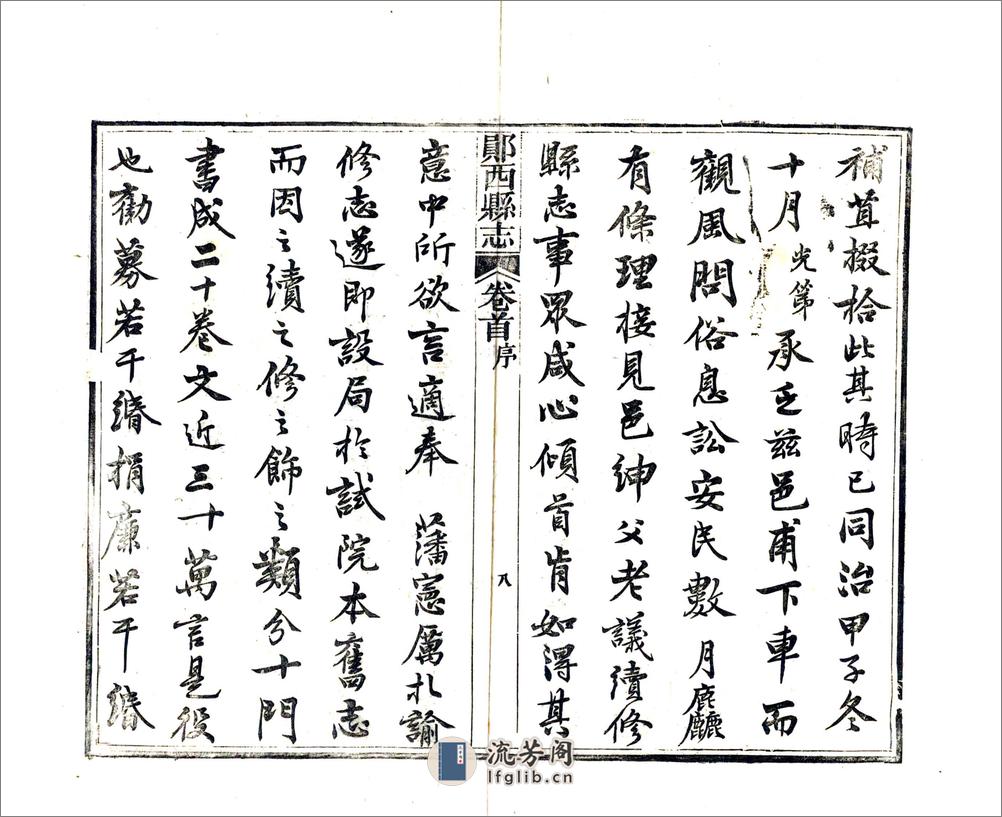 補苴掇拾此其時已同治甲子冬
十月光第承乏兹邑甫下車而
觀風問俗息訟安民數月麤
有條理接見邑紳父老議續修
縣志事眾咸心傾首肯如得其
鄖西縣志 卷首 序 八
意中所欲言適奉 藩憲厲札諭
修志遂即設局於試院本舊志
而因之續之修之飾之類分十門
書成二十卷文近三十萬言是役
也勸募若干緡捐廉若干緡
流芳阁
lfglib.cn